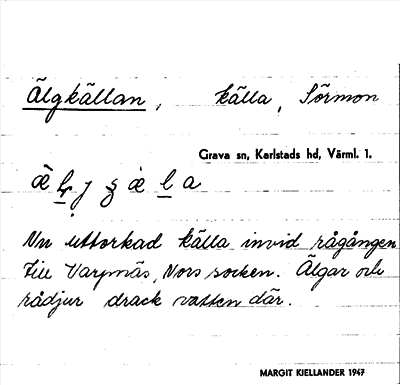 Älgkällan, källa, Sörmon
Grava sn, Karlstads hd, Värml. 1.
Nu uttorkad källa invid rågången
till Varpnäs, Nors socken. Älgar och
rådjur drack vatten där.
MARGIT KJELLANDER 1947